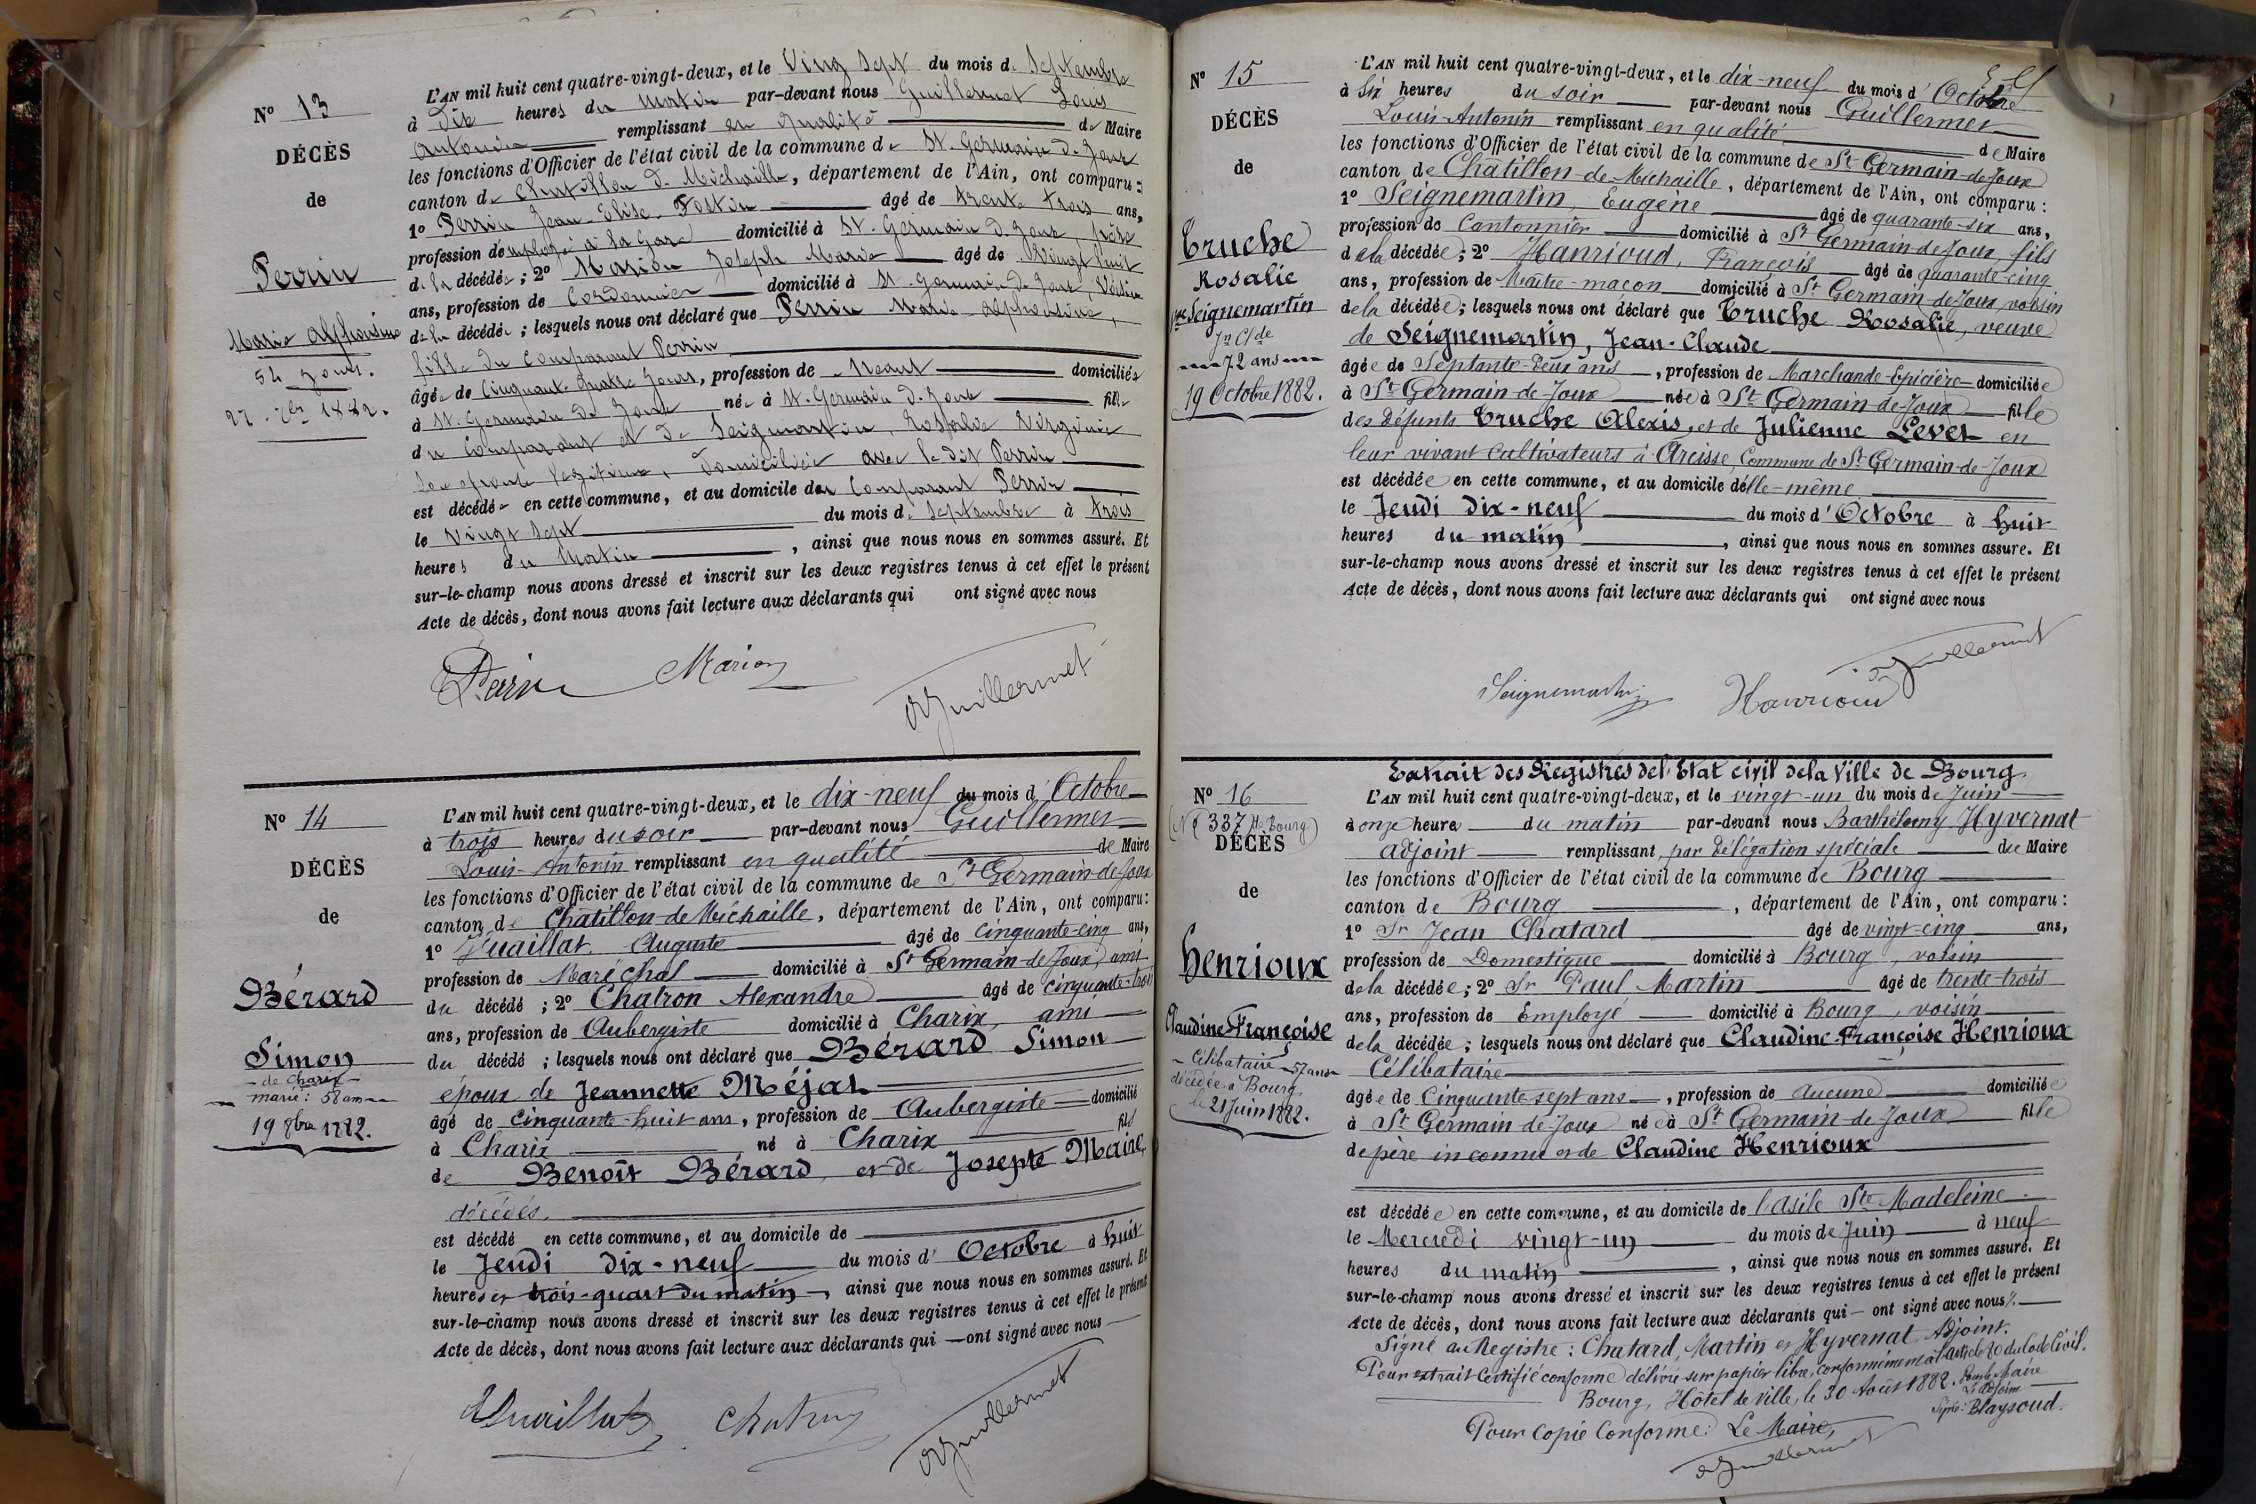 N° 13
DÉCÈS
de
Perrin
Marie Alphonsine
54 jours.
27 7bre 1882.
L'AN mil huit cent quatre-vingt-deux, et le Ving Sept du mois de Septembre
à Dix heures du Matin par-devant nous Guillermet Louis
Antonin remplissant en qualité de Maire
les fonctions d'Officier de l'état civil de la commune de St. Germain de Joux
canton de Chatillon de Michaille, département de l'Ain, ont comparu :
1° Perrin Jean Elise Fostin âgé de trente trois ans,
profession de employé à la Gare domicilié à St. Germain de Joux, père
de la décédée ; 2° Marion Joseph Marie âgé de Vingt huit
ans, profession de Cordonnier domicilié à St. Germain de Joux, Voisin
de la décédée ; lesquels nous ont déclaré que Perrin Marie Alphonsine,
fille du Comparant Perrin
âgée de Cinquante-quatre jours, profession de Néant domiciliée
à St. Germain de Joux née à St. Germain de Joux fille
du Comparant et de Seigmartin, Rosalie Virginie
Son épouse légitime, domiciliée avec le dit Perrin
est décédée en cette commune, et au domicile du Comparant Perrin
le Vingt Sept du mois de Septembre à trois
heures du Matin, ainsi que nous nous en sommes assuré. Et
sur-le-champ nous avons dressé et inscrit sur les deux registres tenus à cet effet le présent
Acte de décès, dont nous avons fait lecture aux déclarants qui ont signé avec nous
Perrin Marion
Guillermet
N° 14
DÉCÈS
de
Bérard
Simon
de Charix
marié : 58 ans
19 8bre 1882.
L'AN mil huit cent quatre-vingt-deux, et le dix-neuf du mois d'Octobre
à trois heures du soir par-devant nous Guillermet
Louis-Antonin remplissant en qualité de Maire
les fonctions d'Officier de l'état civil de la commune de St Germain-de-Joux
canton de Châtillon-de-Michaille, département de l'Ain, ont comparu :
1° Vuaillat Auguste âgé de cinquante-cinq ans,
profession de Maréchal domicilié à St Germain-de-Joux, ami
du décédé ; 2° Chatron Alexandre âgé de cinquante-trois
ans, profession de Aubergiste domicilié à Charix, ami
du décédé ; lesquels nous ont déclaré que Bérard Simon
époux de Jeannette Méjat
âgé de cinquante-huit ans, profession de Aubergiste domicilié
à Charix né à Charix fils
de Benoît Bérard, et de Josepte Maire,
décédés.
est décédé en cette commune, et au domicile de
le Jeudi dix-neuf du mois d'Octobre à huit
heures et trois-quart du matin, ainsi que nous nous en sommes assuré. Et
sur-le-champ nous avons dressé et inscrit sur les deux registres tenus à cet effet le présent
Acte de décès, dont nous avons fait lecture aux déclarants qui ont signé avec nous
Vuaillat Chatron
Guillermet
N° 15
DÉCÈS
de
Truche
Rosalie
Vve Seignemartin
Jn Cl de
72 ans
19 Octobre 1882.
L'AN mil huit cent quatre-vingt-deux, et le dix-neuf du mois d'Octobre
à Six heures du soir par-devant nous Guillermet
Louis-Antonin remplissant en qualité de Maire
les fonctions d'Officier de l'état civil de la commune de St Germain-de-Joux
canton de Châtillon-de-Michaille, département de l'Ain, ont comparu :
1° Seignemartin, Eugène âgé de quarante-six ans,
profession de Cantonnier domicilié à St Germain-de-Joux, fils
de la décédée ; 2° Hanrioud, François âgé de quarante-cinq
ans, profession de Maître-maçon domicilié à St Germain-de-Joux, voisin
de la décédée ; lesquels nous ont déclaré que Truche Rosalie, veuve
de Seignemartin, Jean-Claude
âgée de Septante-deux ans, profession de Marchande-Epicière domiciliée
à St Germain-de-Joux née à St Germain-de-Joux fille
des défunts Truche Alexis, et de Julienne Levet en
leur vivant Cultivateurs à Arcisse, Commune de St Germain-de-Joux
est décédée en cette commune, et au domicile d'elle-même
le Jeudi dix-neuf du mois d'Octobre à huit
heures du matin, ainsi que nous nous en sommes assuré. Et
sur-le-champ nous avons dressé et inscrit sur les deux registres tenus à cet effet le présent
Acte de décès, dont nous avons fait lecture aux déclarants qui ont signé avec nous
Guillermet
Seignemartin Hanrioud
Extrait des Registres de l'Etat civil de la Ville de Bourg.
N° 16
(N° 337 de Bourg)
DÉCÈS
de
Henrioux
Claudine-Françoise
Célibataire 57 ans
décédée à Bourg
le 21 Juin 1882.
L'AN mil huit cent quatre-vingt-deux, et le vingt-un du mois de Juin
à onze heures du matin par-devant nous Barthélemy Hyvernat
adjoint remplissant, par délégation spéciale du Maire
les fonctions d'Officier de l'état civil de la commune de Bourg
canton de Bourg, département de l'Ain, ont comparu :
1° Sr Jean Chatard âgé de vingt-cinq ans,
profession de Domestique domicilié à Bourg, voisin
de la décédée ; 2° Sr Paul Martin âgé de trente-trois
ans, profession de Employé domicilié à Bourg, voisin
de la décédée ; lesquels nous ont déclaré que Claudine-Françoise Henrioux
Célibataire
âgée de Cinquante sept ans, profession de aucune domiciliée
à St Germain-de-Joux née à St Germain-de-Joux fille
de père inconnu et de Claudine Henrioux
est décédée en cette commune, et au domicile de l'Asile Ste Madeleine
le Mercredi vingt-un du mois de Juin à neuf
heures du matin, ainsi que nous nous en sommes assuré. Et
sur-le-champ nous avons dressé et inscrit sur les deux registres tenus à cet effet le présent
Acte de décès, dont nous avons fait lecture aux déclarants qui ont signé avec nous ./.
Signé au Registre : Chatard, Martin et Hyvernat Adjoint.
Pour extrait certifié conforme délivré sur papier libre, conformément à l'article 80 du Code Civil.
Bourg, Hôtel de Ville, le 30 Août 1882. Pour le Maire
L'Adjoint
Signé : Blaysoud.
Pour Copie Conforme : Le Maire,
Guillermet